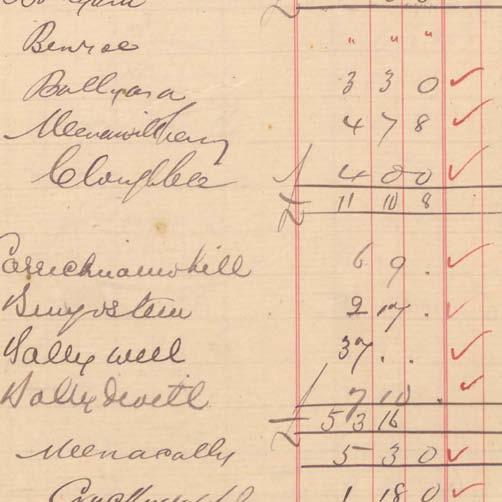 Benroe " " "
Ballyara 3 3 0 ✓
4 7 8 ✓
Cloughbee 4 0 0 ✓
£ 11 10 8
6 9 . ✓
2 17 . ✓
Ballyweel 37 . . ✓
Ballydevitt 7 10 . ✓
£ 53 16
Meenacally 5 3 0 ✓
1 18 0 ✓